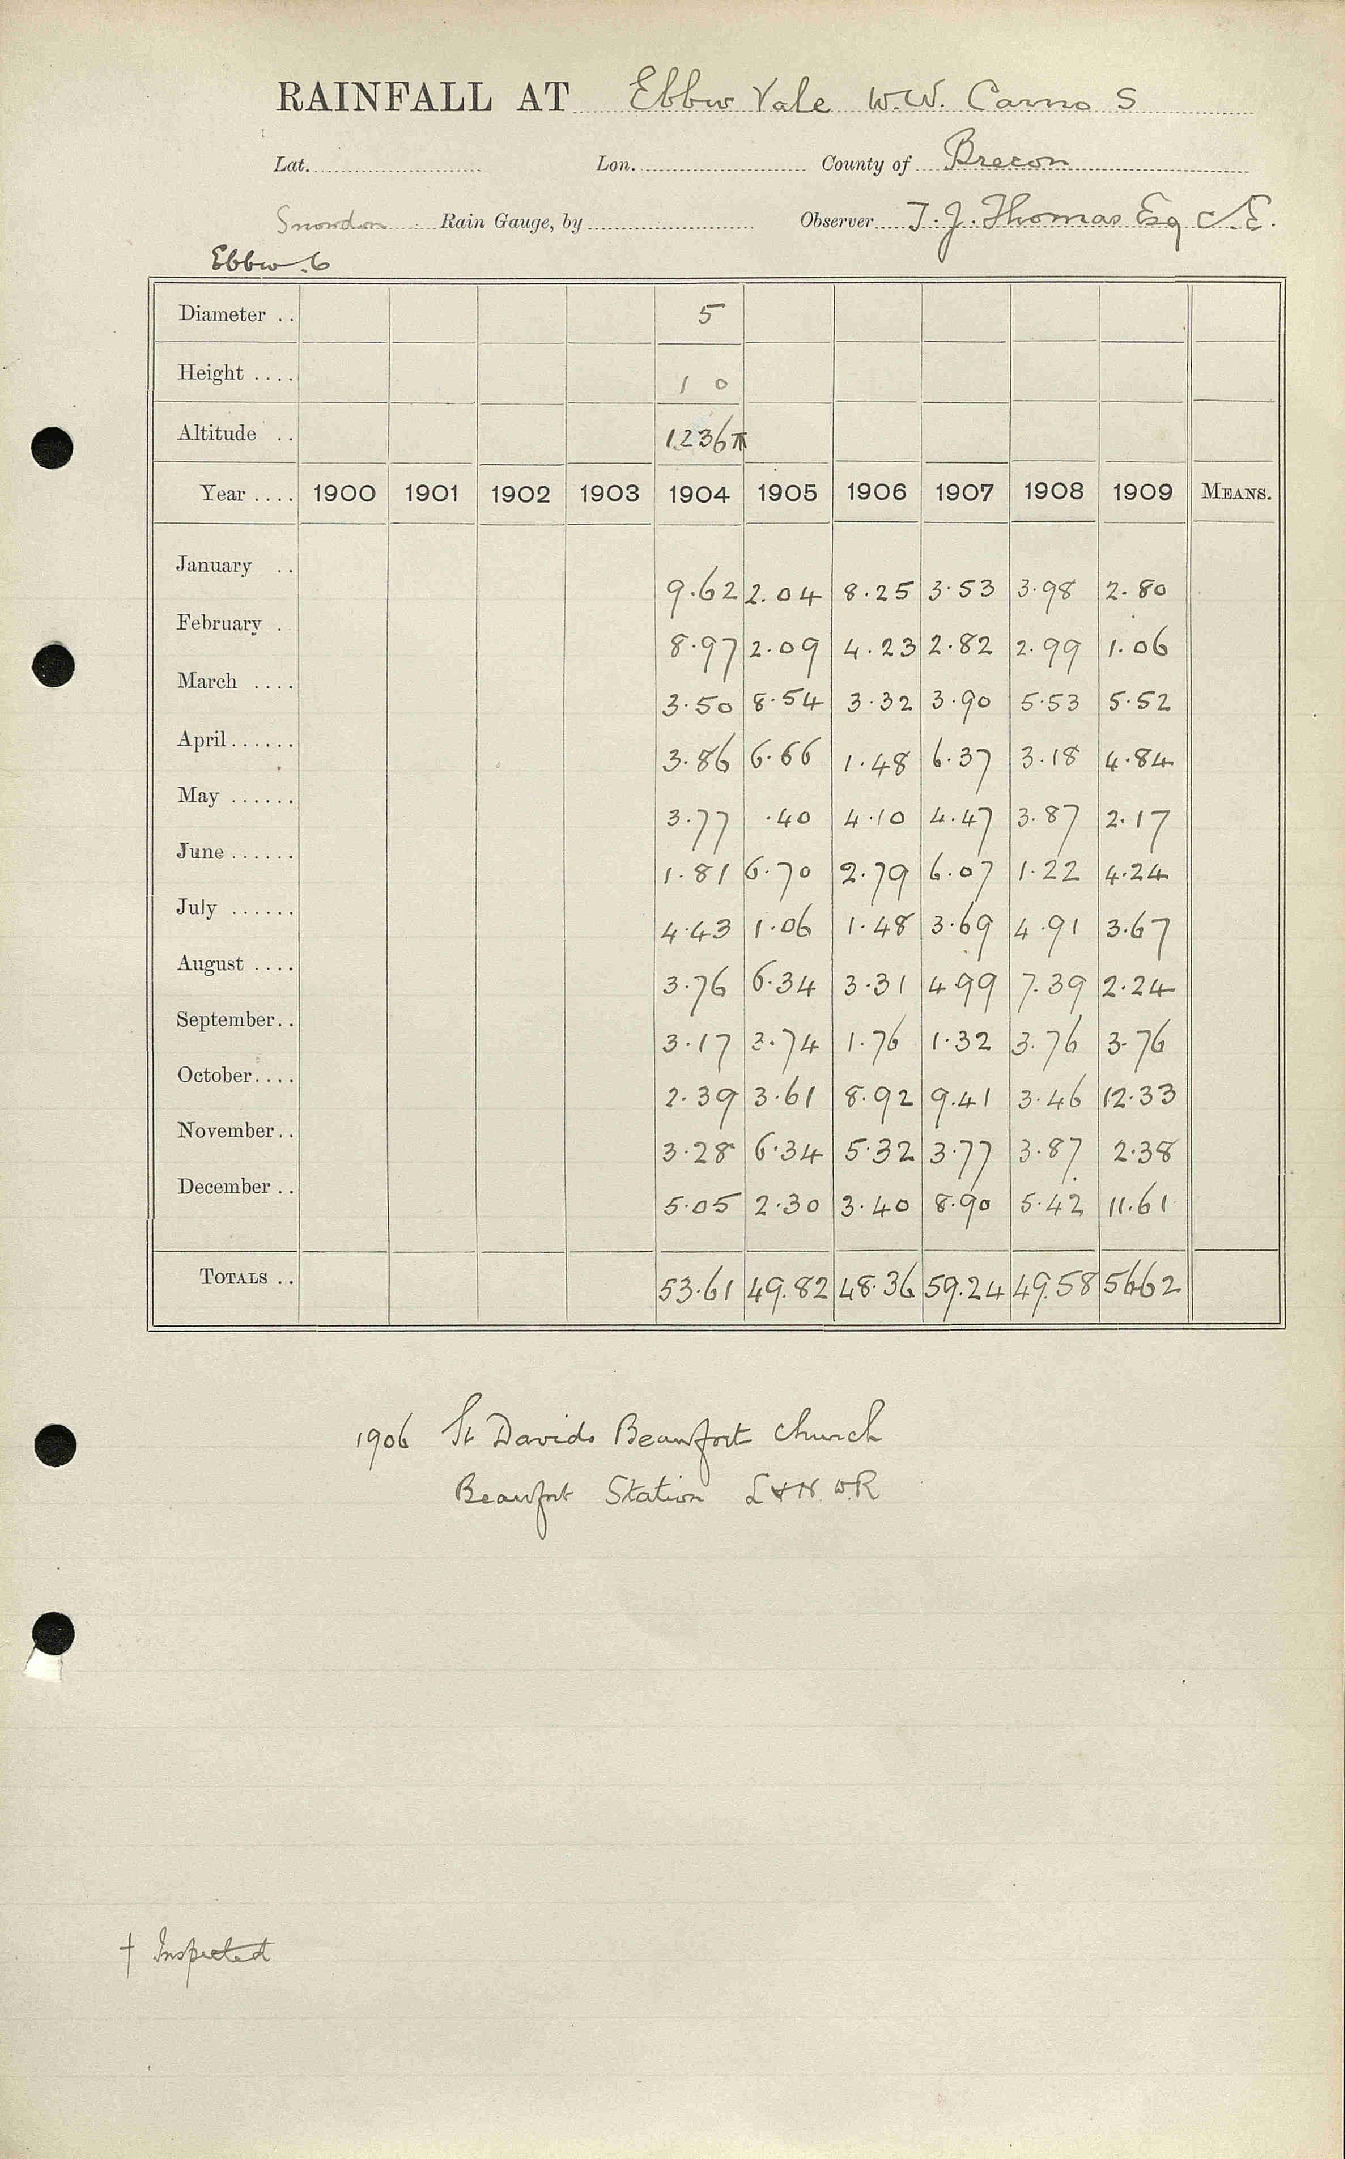 RAINFALL AT Ebbw Vale W.W. Carno S
Lat. Lon. County of Brecon
Snowdon Rain Gauge, by Observer T. J. Thomas Esq C.E.
Ebbw. 6
Diameter .. 5
Height .... 1 0
Altitude .. 1236
Year .... 1900 1901 1902 1903 1904 1905 1906 1907 1908 1909 MEANS.
January .. 9.62 2.04 8.25 3.53 3.98 2.80
February . 8.97 2.09 4.23 2.82 2.99 1.06
March .... 3.50 8.54 3.32 3.90 5.53 5.52
April...... 3.86 6.66 1.48 6.37 3.18 4.84
May ...... 3.77 .40 4.10 4.47 3.87 2.17
June...... 1.81 6.70 2.79 6.07 1.22 4.24
July ...... 4.43 1.06 1.48 3.69 4.91 3.67
August .... 3.76 6.34 3.31 4.99 7.39 2.24
September.. 3.17 3.74 1.76 1.32 3.76 3.76
October.... 2.39 3.61 8.92 9.41 3.46 12.33
November.. 3.28 6.34 5.32 3.77 3.87 2.38
December .. 5.05 2.30 3.40 8.90 5.42 11.61
TOTALS .. 53.61 49.82 48.36 59.24 49.58 56.62
1906 St Davids Beaufort Church
Beaufort Station L & N. W. R
† Inspected